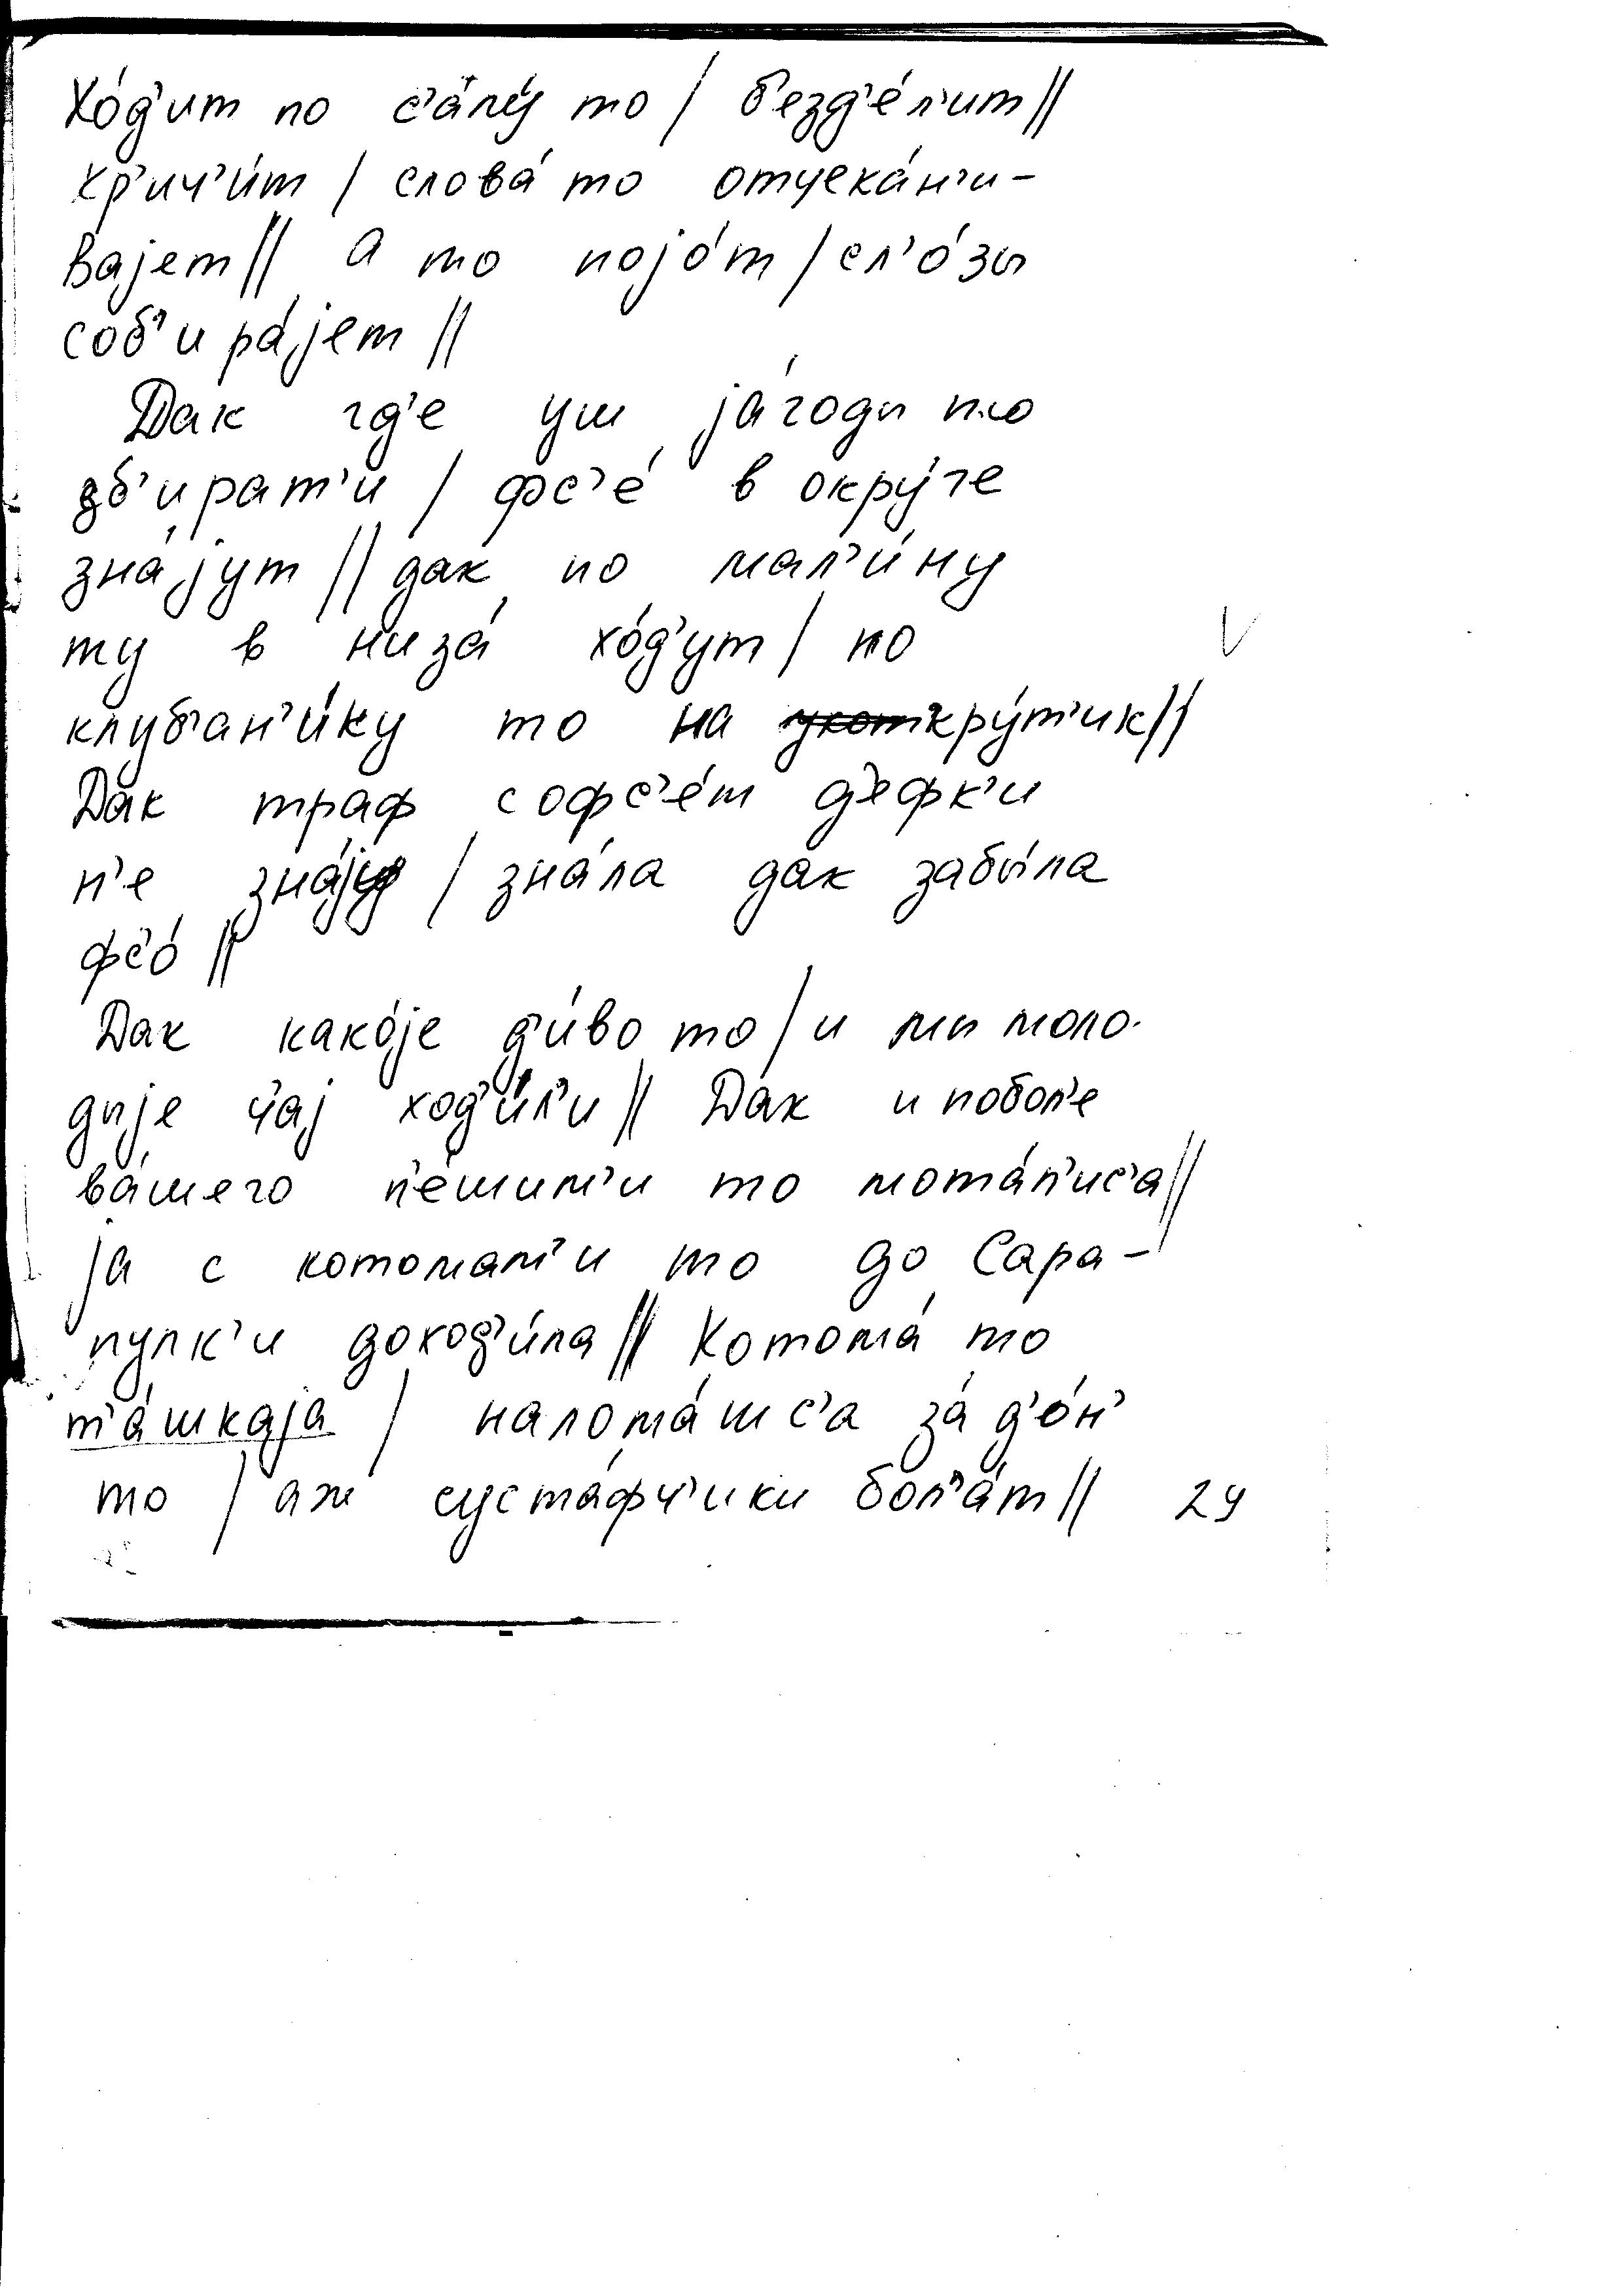 Хо́д'ит по с'алу́ то / б'езд'е́л'ит //
хр'ич'и́т / слова́ то отчека́н'и-
вајет // а то појо́т / сл'о́зы
соб'ира́јет //
Дак гд'е уш ја́годы то
зб'ират'и / фс'е́ в окру́ге
зна́јут // дак по мал'и́ну
ту в низа́ хо́д'ут / по
клуб'ан'и́ку то на кру́т'ик //
Дак траф софс'е́м д'е́фк'и
н'е зна́ју / зна́ла дак забы́ла
фс'о́ //
Дак како́је д'и́во то / и мы моло-
дыје ч'ај ход'и́л'и // Дак и побол'е
ва́шего п'е́шим'и то мота́л'ис'а //
ја с котомам'и то до Сара-
пулк'и доход'и́ла // Котома́ то
т'а́шкаја / налома́шс'а за́ д'о́н'
то / аж суста́фч'ики бол'а́т // 24